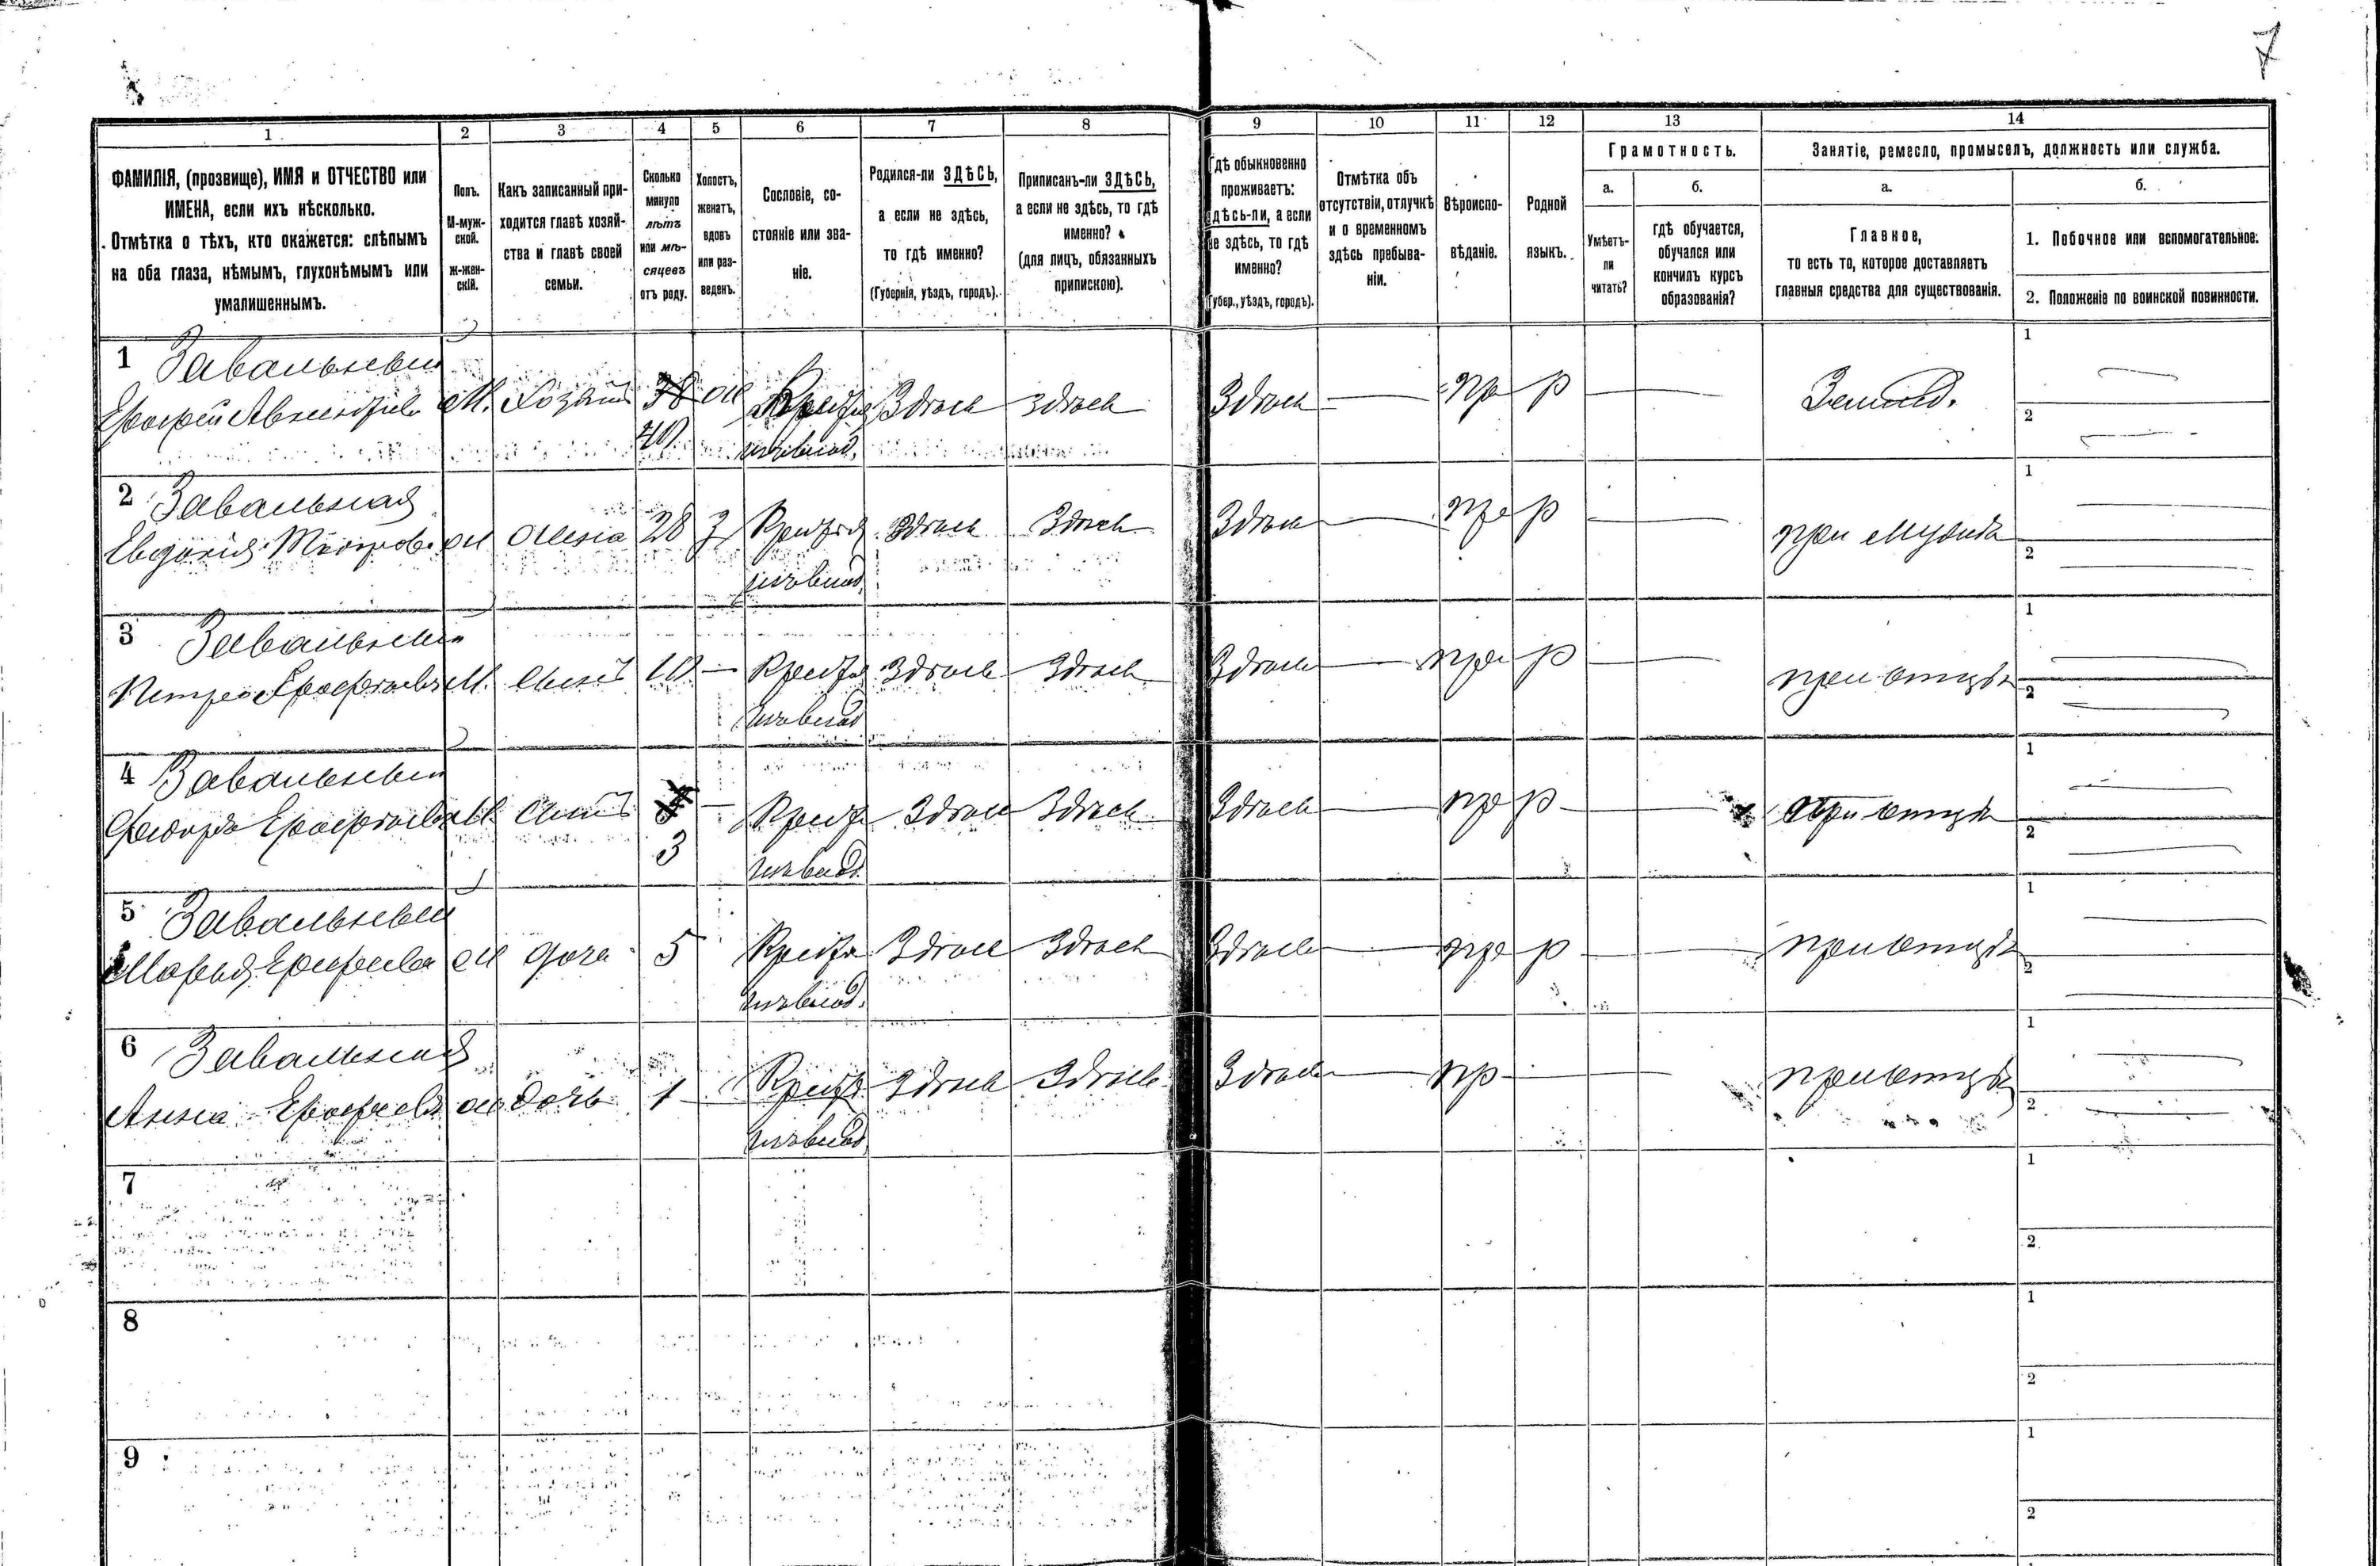 7
1 2 3 4 5 6 7 8 9 10 11 12 13 14
ФАМИЛІЯ, (прозвище), ИМЯ и ОТЧЕСТВО или
ИМЕНА, если ихъ нѣсколько.
Отмѣтка о тѣхъ, кто окажется: слѣпымъ
на оба глаза, нѣмымъ, глухонѣмымъ или
умалишеннымъ.
Полъ.
М-муж-
ской.
ж-жен-
скій.
Какъ записанный при-
ходится главѣ хозяй-
ства и главѣ своей
семьи.
Сколько
минуло
лѣтъ
или мѣ-
сяцевъ
отъ роду.
Холостъ,
женатъ,
вдовъ
или раз-
веденъ.
Сословіе, со-
стояніе или зва-
ніе.
Родился-ли ЗДѢСЬ,
а если не здѣсь,
то гдѣ именно?
(Губернія, уѣздъ, городъ).
Приписанъ-ли ЗДѢСЬ,
а если не здѣсь, то гдѣ
именно?
(для лицъ, обязанныхъ
припискою).
Гдѣ обыкновенно
проживаетъ:
здѣсь-ли, а если
не здѣсь, то гдѣ
именно?
(Губер., уѣздъ, городъ).
Отмѣтка объ
отсутствіи, отлучкѣ
и о временномъ
здѣсь пребыва-
ніи.
Вѣроиспо-
вѣданіе.
Родной
языкъ.
Грамотность.
а.
Умѣетъ-
ли
читать?
б.
гдѣ обучается,
обучался или
кончилъ курсъ
образованія?
Занятіе, ремесло, промыселъ, должность или служба.
а.
Главное,
то есть то, которое доставляетъ
главныя средства для существованія.
б.
1. Побочное или вспомогательное.
2. Положеніе по воинской повинности.
1 Завальный 1
М. 38 ж Здѣсь здѣсь Здѣсь — пр р — — 2
40
2 Завальная 1
Евдокія ж жена 28 з Здѣсь Здѣсь Здѣсь — пр р — — при мужѣ 2
3 Завальный 1
Петро М. сынъ 10 — Здѣсь Здѣсь Здѣсь — пр р — — при отцѣ 2
4 Завальный 1
М. сынъ — Здѣсь Здѣсь Здѣсь — пр р — — при отцѣ 2
3
5 Завальный 1
Марья ж доча 5 Здѣсь Здѣсь Здѣсь — пр р — — при отцѣ 2
6 Завальная 1
Анна ж дочь 1 — Здѣсь Здѣсь Здѣсь — пр — — при отцѣ 2
7 1
2
8 1
2
9 1
2